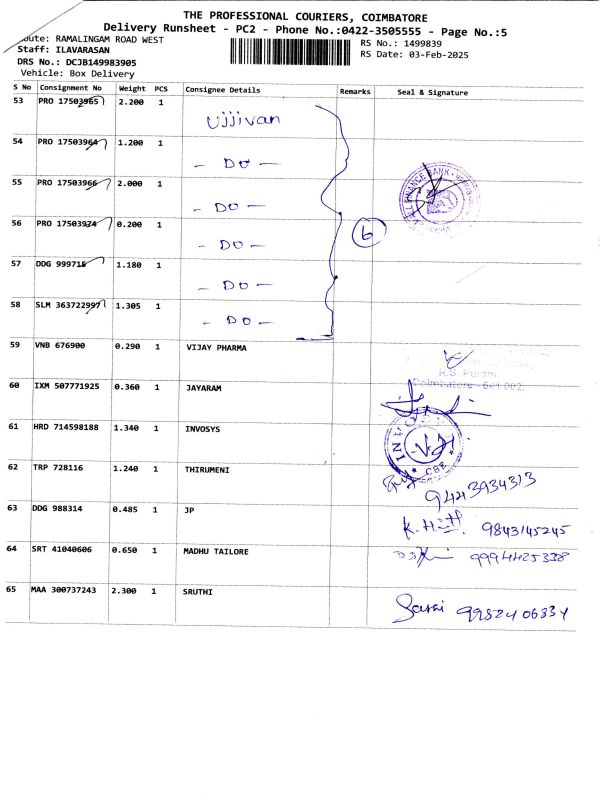 THE PROFESSIONAL COURIERS, COIMBATORE
Delivery Runsheet - PC2 - Phone No.:0422-3505555 - Page No.:5
oute: RAMALINGAM ROAD WEST
RS No.: 1499839
Staff: ILAVARASAN
RS Date: 03-Feb-2025
DRS No.: DCJB149983905
Vehicle: Box Delivery
S No Consignment No Weight PCS Consignee Details Remarks Seal & Signature
53 PRO 17503965 2.200 1 Ujjivan
54 PRO 17503964 1.200 1 - DO -
55 PRO 17503966 2.000 1 - DO -
56 PRO 17503924 0.200 1 - DO - 6
57 DDG 999715 1.180 1 - DO -
58 SLM 363722997 1.305 1 - DO -
59 VNB 676900 0.290 1 VIJAY PHARMA
R.S. Puram,
Coimbatore - 641 002.
60 IXM 507771925 0.360 1 JAYARAM
61 HRD 714598188 1.340 1 INVOSYS
INVO
CBE
62 TRP 728116 1.240 1 THIRUMENI 9443934313
63 DDG 988314 0.485 1 JP 9843145245
64 SRT 41040606 0.650 1 MADHU TAILORE 9994425338
65 MAA 300737243 2.300 1 SRUTHI 9952406334